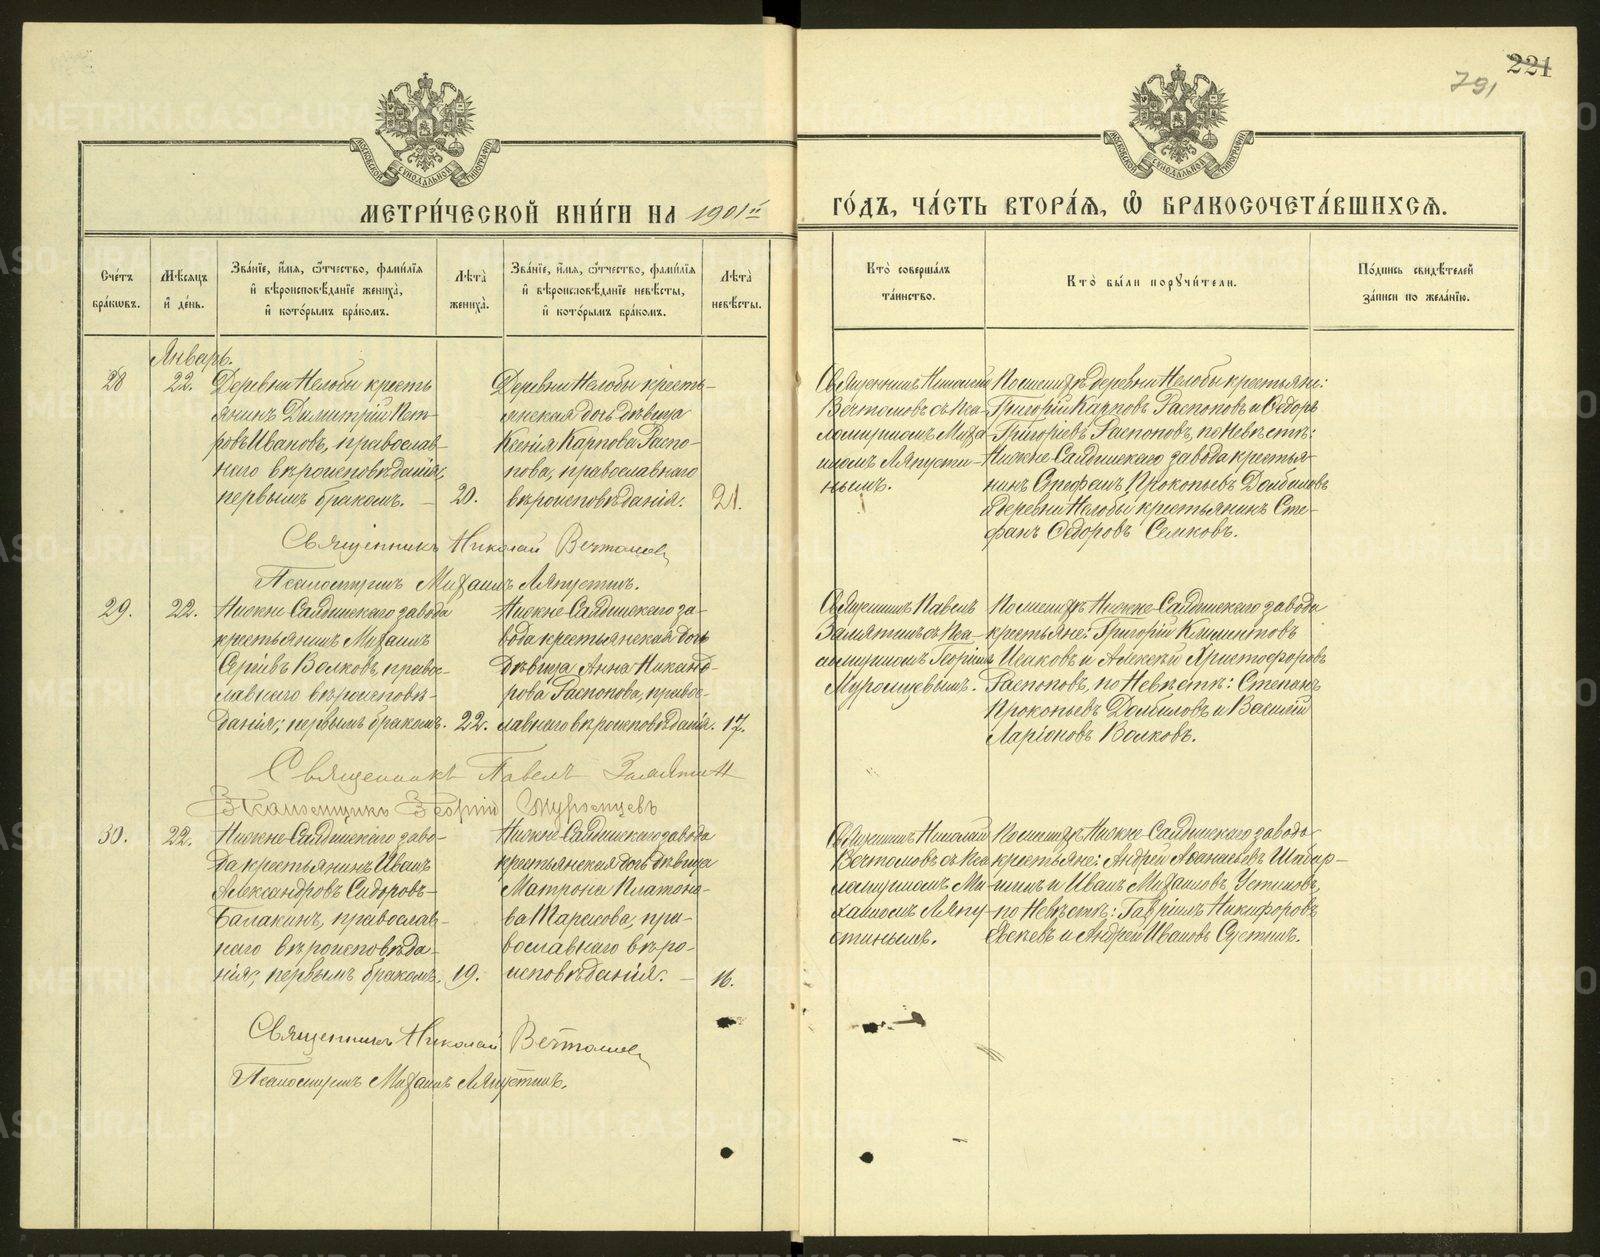 221
791
МОСКОВСКОЙ СѴНОДАЛЬНОЙ ТИПОГРАФІИ
МОСКОВСКОЙ СѴНОДАЛЬНОЙ ТИПОГРАФІИ
МЕТРИ́ЧЕСКОЙ КНИ́ГИ НА 1901й ГО́ДЪ, ЧА́СТЬ ВТОРА́Ѧ, Ѽ БРАКОСОЧЕТА́ВШИХСѦ.
Сче́тъ бра́кѡвъ.
Мѣ́сѧцъ и҆ де́нь.
Зва́нїе, и҆́мѧ, ѻ҆́тчество, фами́лїѧ и҆ вѣроисповѣ́данїе жениха̀, и҆ кото́рымъ бра́комъ.
Лѣ̀та̀ жениха̀.
Зва́нїе, и҆́мѧ, ѻ҆́тчество, фами́лїѧ и҆ вѣроисповѣ́данїе невѣ́сты, и҆ кото́рымъ бра́комъ.
Лѣ̀та̀ невѣ́сты.
Кто̀ соверша́лъ та́инство.
Кто̀ бы́ли порꙋчи́тели.
По́дпись свидѣ́телей за́писи по жела́нїю.
Январь.
28
22.
Деревни Нелобы кресть-
янинъ Димитрій Пет-
ровъ Ивановъ, православ-
наго вѣроисповѣданія,
первымъ бракомъ.
20.
Деревни Нелобы кресть-
янская дочь дѣвица
Ксенія Карпова Распо-
пова, православнаго
вѣроисповѣданія.
21.
Священникъ Николай
Вечтомовъ съ Пса-
ломщикомъ Миха-
иломъ Ляпусти-
нымъ.
По женихѣ деревни Нелобы крестьяне:
Григорій Карповъ Распоповъ и Ѳедоръ
Григоріевъ Распоповъ, по Невѣстѣ:
Нижне-Салдинскаго завода кресть-
нинъ Стефанъ Прокопьевъ Долбиловъ
и деревни Нелобы крестьянинъ Сте-
фанъ Ѳедоровъ Семковъ.
Священникъ Николай Вечтомовъ
Псаломщикъ Михаилъ Ляпустинъ.
29.
22.
Нижне-Салдинскаго завода
крестьянинъ Михаилъ
Сергіевъ Волковъ, право-
славнаго вѣроисповѣ-
данія, первымъ бракомъ.
22.
Нижне-Салдинскаго за-
вода крестьянская дочь
дѣвица Анна Никанд-
рова Распопова, право-
славнаго вѣроисповѣданія.
17.
Священникъ Павелъ
Замятинъ съ Пса-
ломщикомъ Георгіемъ
Муромцевымъ.
По женихѣ Нижне-Салдинскаго завода
крестьяне: Григорій Климентовъ
Исаковъ и Алексѣй Христофоровъ
Распоповъ, по Невѣстѣ: Степанъ
Прокопьевъ Долбиловъ и Василій
Ларіоновъ Волковъ.
Священникъ Павелъ Замятинъ
Псаломщикъ Георгій Муромцевъ
30.
22.
Нижне-Салдинскаго заво-
да крестьянинъ Иванъ
Александровъ Сидоровъ-
Балакинъ, православ-
наго вѣроисповѣда-
нія, первымъ бракомъ.
19.
Нижне-Салдинскаго завода
крестьянская дочь дѣвица
Матрона Платоно-
ва Тарасова, пра-
вославнаго вѣро-
исповѣданія.
16.
Священникъ Николай
Вечтомовъ съ Пса
ломщикомъ Ми-
хаиломъ Ляпу-
стинымъ.
По женихѣ Нижне-Салдинскаго завода
крестьяне: Андрей Аѳанасьевъ Шабар-
шинъ и Иванъ Михаиловъ Устиновъ,
по Невѣстѣ: Гавріилъ Никифоровъ
и Андрей Ивановъ Сустинъ.
Священникъ Николай Вечтомовъ
Псаломщикъ Михаилъ Ляпустинъ.